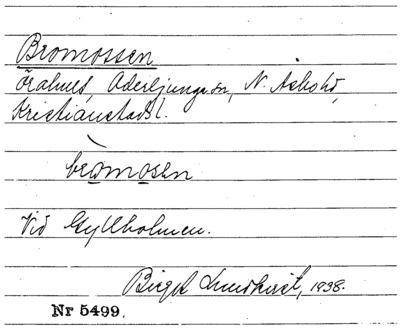 Bromossen
Örahult, Aderljunga sn, N. Åsbo hd,
Kristianstads l.
bromosen
Vid Gyllholmen.
Birgit Lundkvist, 1938.
Nr 5499.